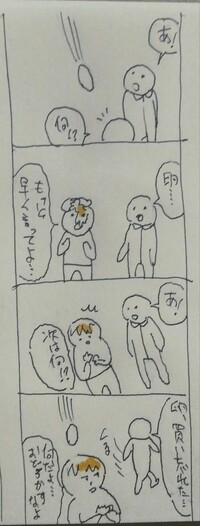 あ!
何!?
卵…
もっと
早く言ってよ…
あ!
次は何!?
卵、買い忘れた…
くる
何だよ…
おどかす
なよ